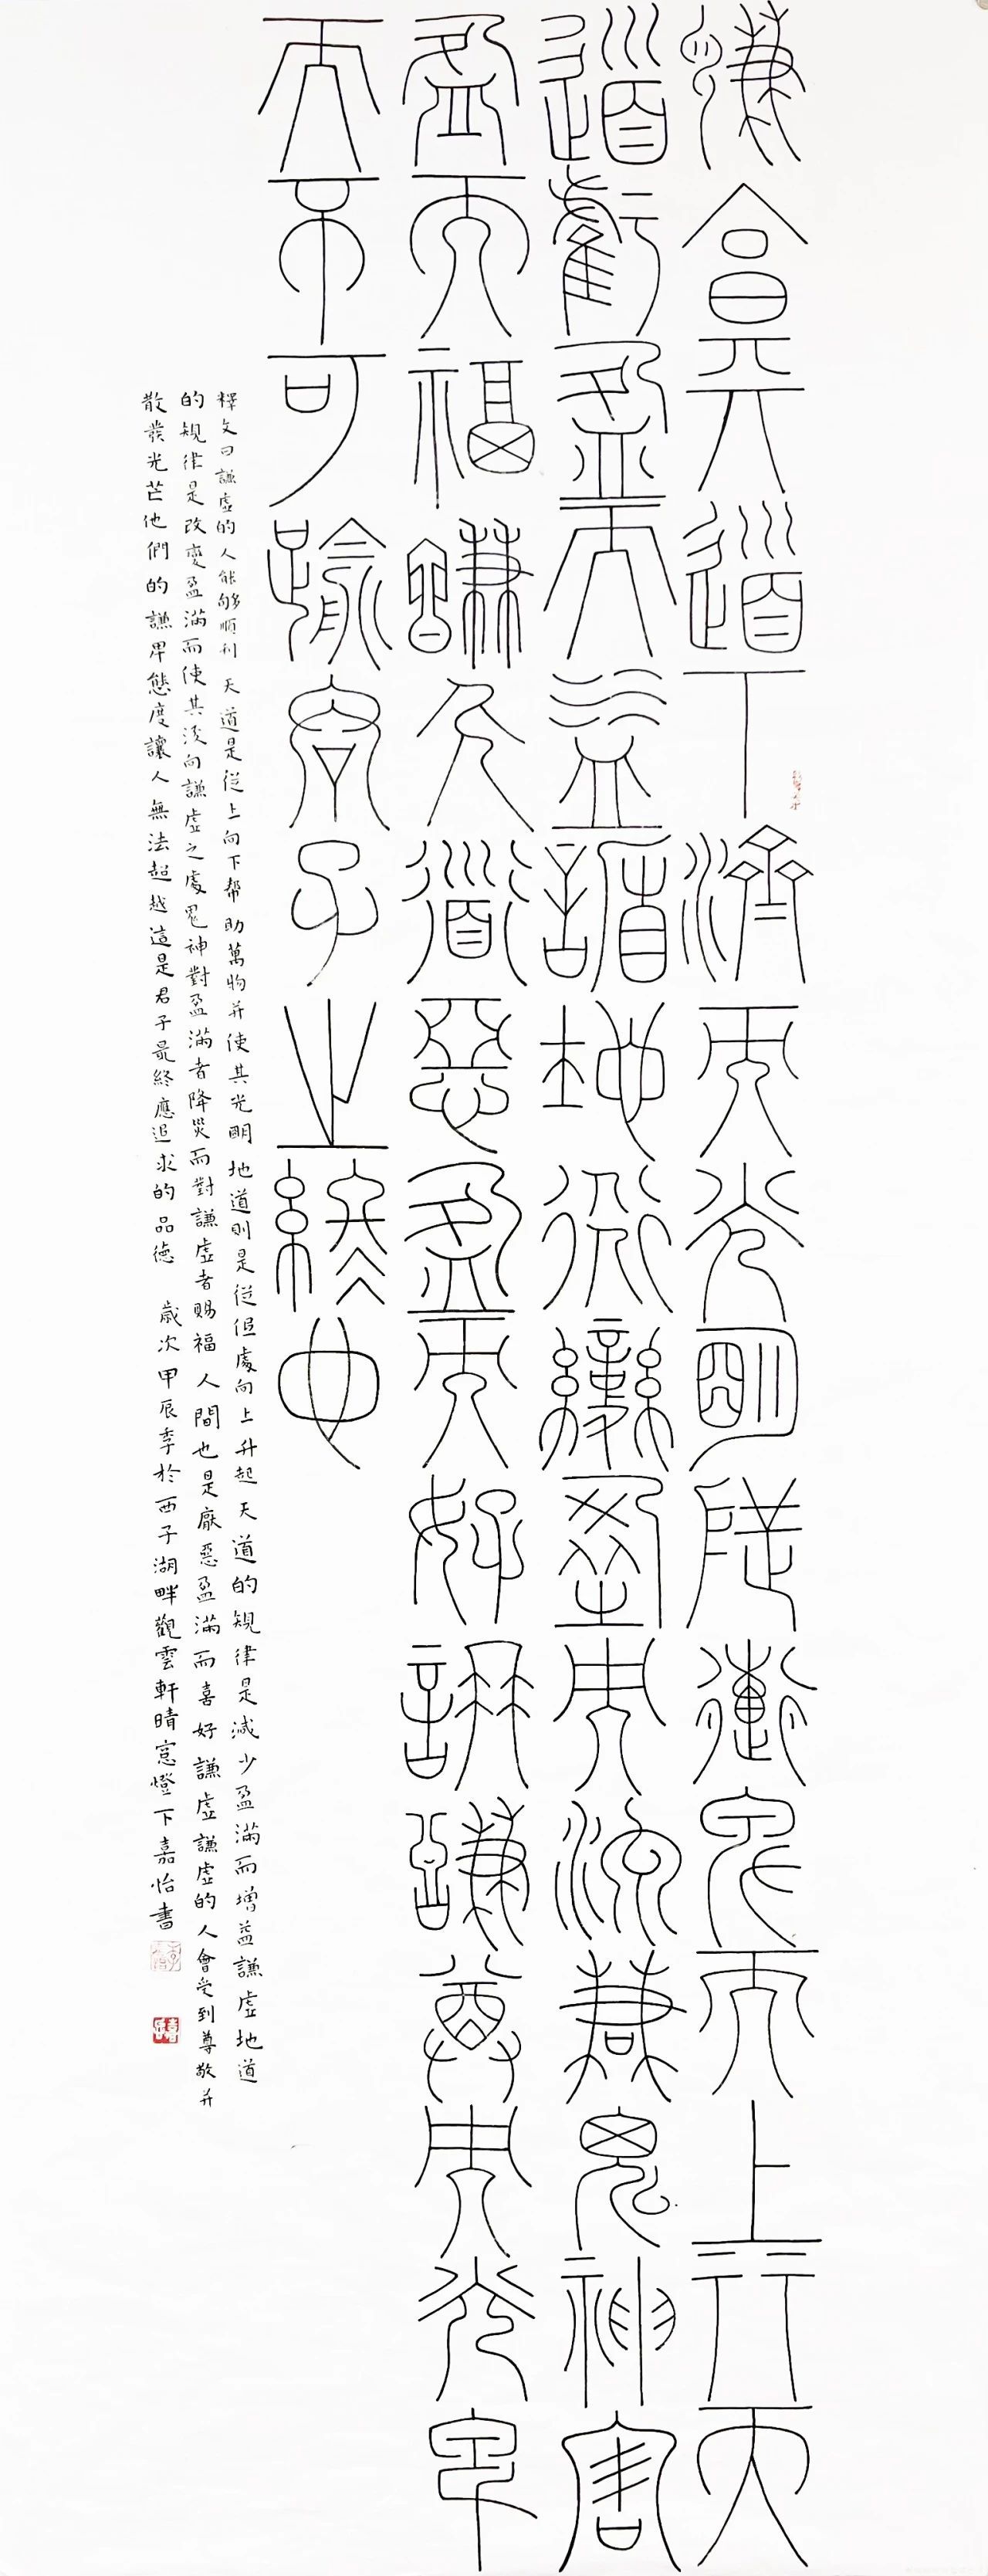 謙亨天道下濟而光明地道卑而上行天
道虧盈而益謙地道變盈而流謙鬼神害
盈而福謙人道惡盈而好謙謙尊而光卑
而不可踰君子之終也
釋文曰謙虛的人能够順利 天道是從上向下幫助萬物并使其光明 地道則是從低處向上升起 天道的規律是減少盈滿而增益謙虛地道
的規律是改變盈滿而使其流向謙虛之處鬼神對盈滿者降災而對謙虛者賜福 人間也是厭惡盈滿而喜好謙虛謙虛的人會受到尊敬并
散發光芒他們的謙卑態度讓人無法超越這是君子最終應追求的品德 歲次甲辰秊於西子湖畔觀雲軒晴窗燈下嘉怡書